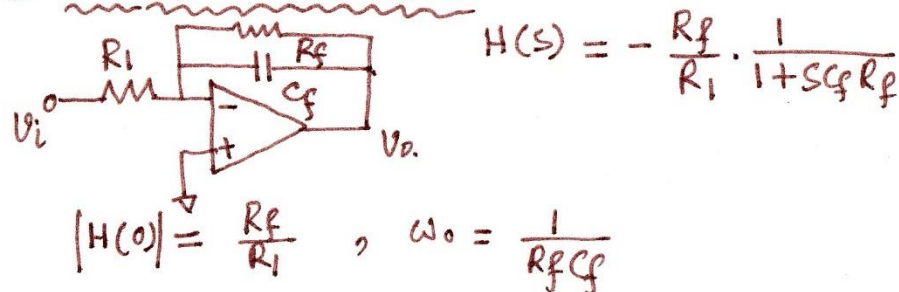 R1
Rf
Cf
Vi
-
+
Vo.
H(S) = - Rf/R1 . 1/(1+SCfRf)
|H(0)| = Rf/R1 , ω0 = 1/(RfCf)